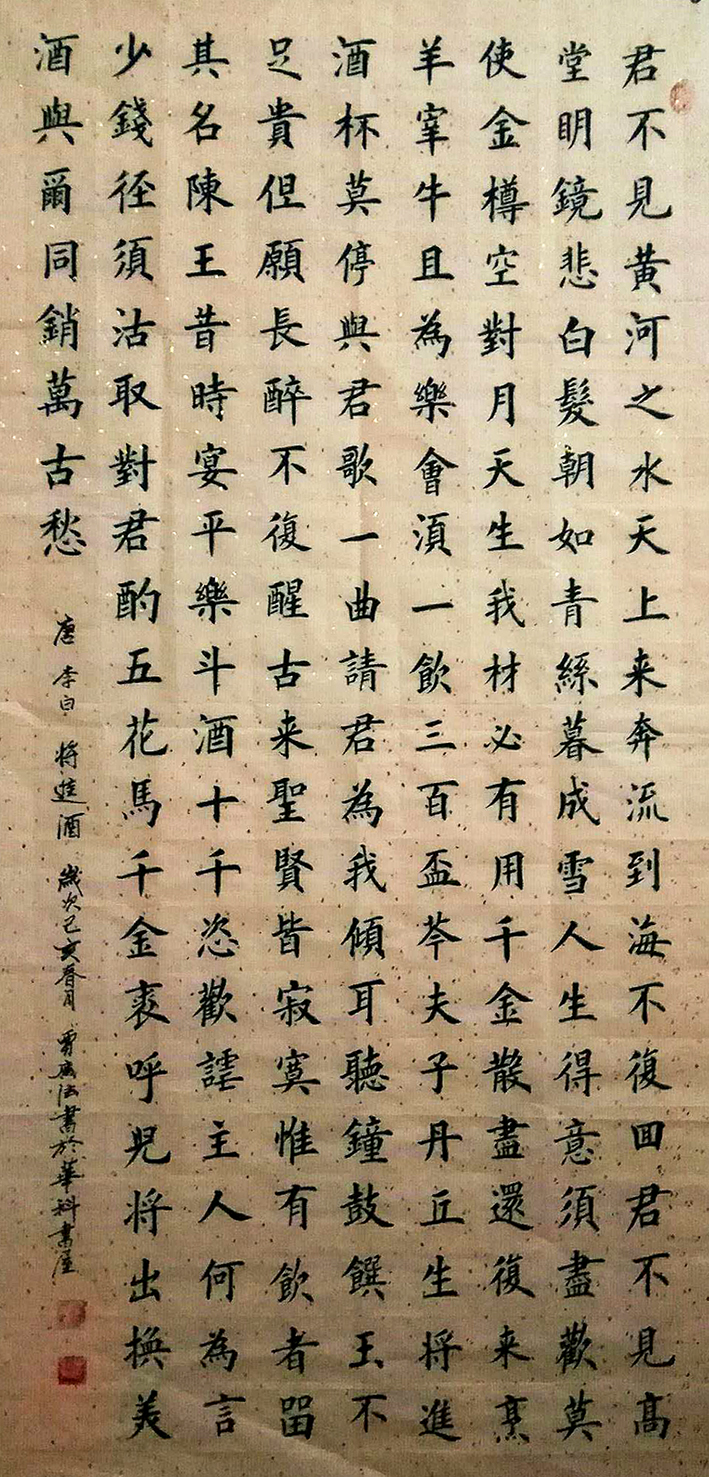 君不見黄河之水天上来奔流到海不復回君不見高
堂明鏡悲白髮朝如青絲暮成雪人生得意須盡歡莫
使金樽空對月天生我材必有用千金散盡還復来烹
羊宰牛且為樂會湏一飲三百盃芩夫子丹丘生将進
酒杯莫停與君歌一曲請君為我傾耳聽鐘鼓饌玉不
足貴但願長醉不復醒古来聖賢皆寂寞惟有飲者留
其名陳王昔時宴平樂斗酒十千恣歡謔主人何為言
少錢徑須沽取對君酌五花馬千金裘呼児将出換美
酒與爾同銷萬古愁
唐 李白 将進酒 歲次己亥春月 書於華科書屋